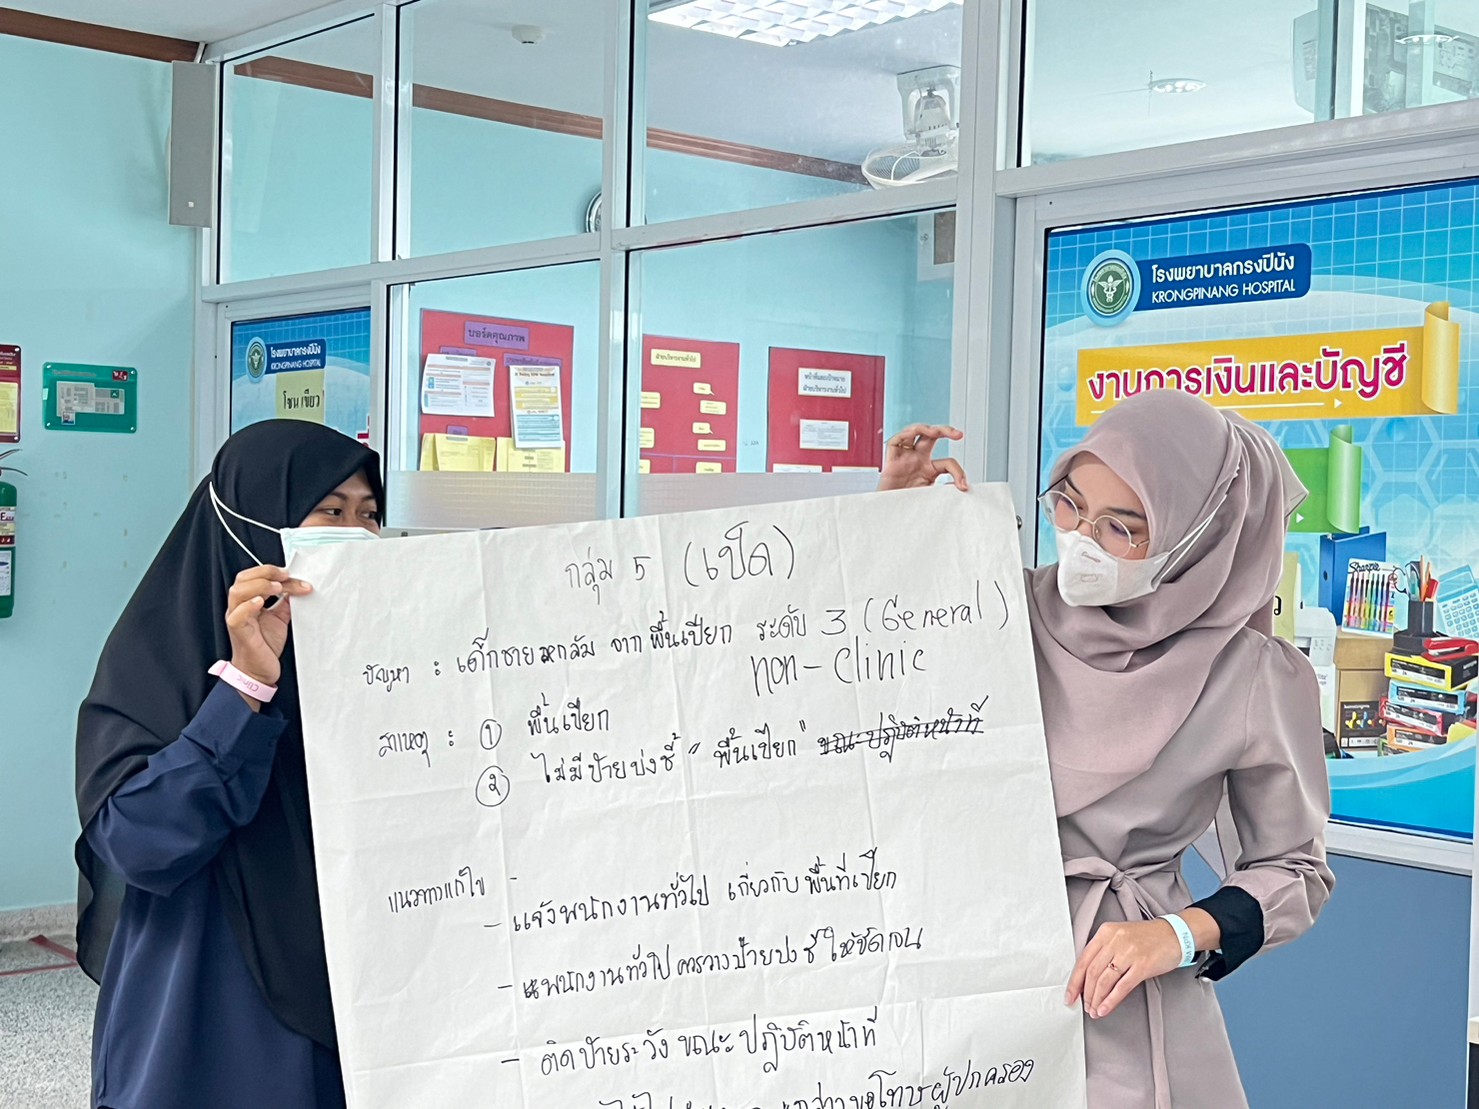 โรงพยาบาลกรงปินัง
KRONGPINANG HOSPITAL
งานการเงินและบัญชี
โรงพยาบาลกรงปินัง
KRONGPINANG HOSPITAL
โซนเขียว
บอร์ดคุณภาพ
ฝ่ายบริหารงานทั่วไป
หน้าที่และเป้าหมาย
ฝ่ายบริหารงานทั่วไป
Sharpie
กลุ่ม 5 (เป็ด)
ปัญหา : เด็กชายหกล้ม จากพื้นเปียก ระดับ 3 (General)
non-clinic
สาเหตุ : ① พื้นเปียก
② ไม่มีป้ายบ่งชี้ "พื้นเปียก" ขณะปฏิบัติหน้าที่
แนวทางแก้ไข -
- แจ้งพนักงานทั่วไป เกี่ยวกับพื้นที่เปียก
- พนักงานทั่วไปควรวางป้ายบ่งชี้ให้ชัดเจน
- ติดป้ายระวังขณะปฏิบัติหน้าที่
ขอโทษผู้ปกครอง